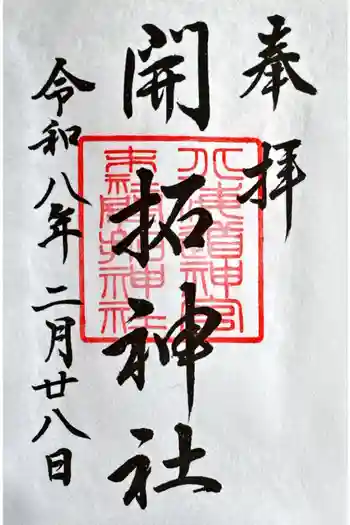 奉拝
開拓神社
令和八年二月廿八日
北海道神宮
末社開拓神社